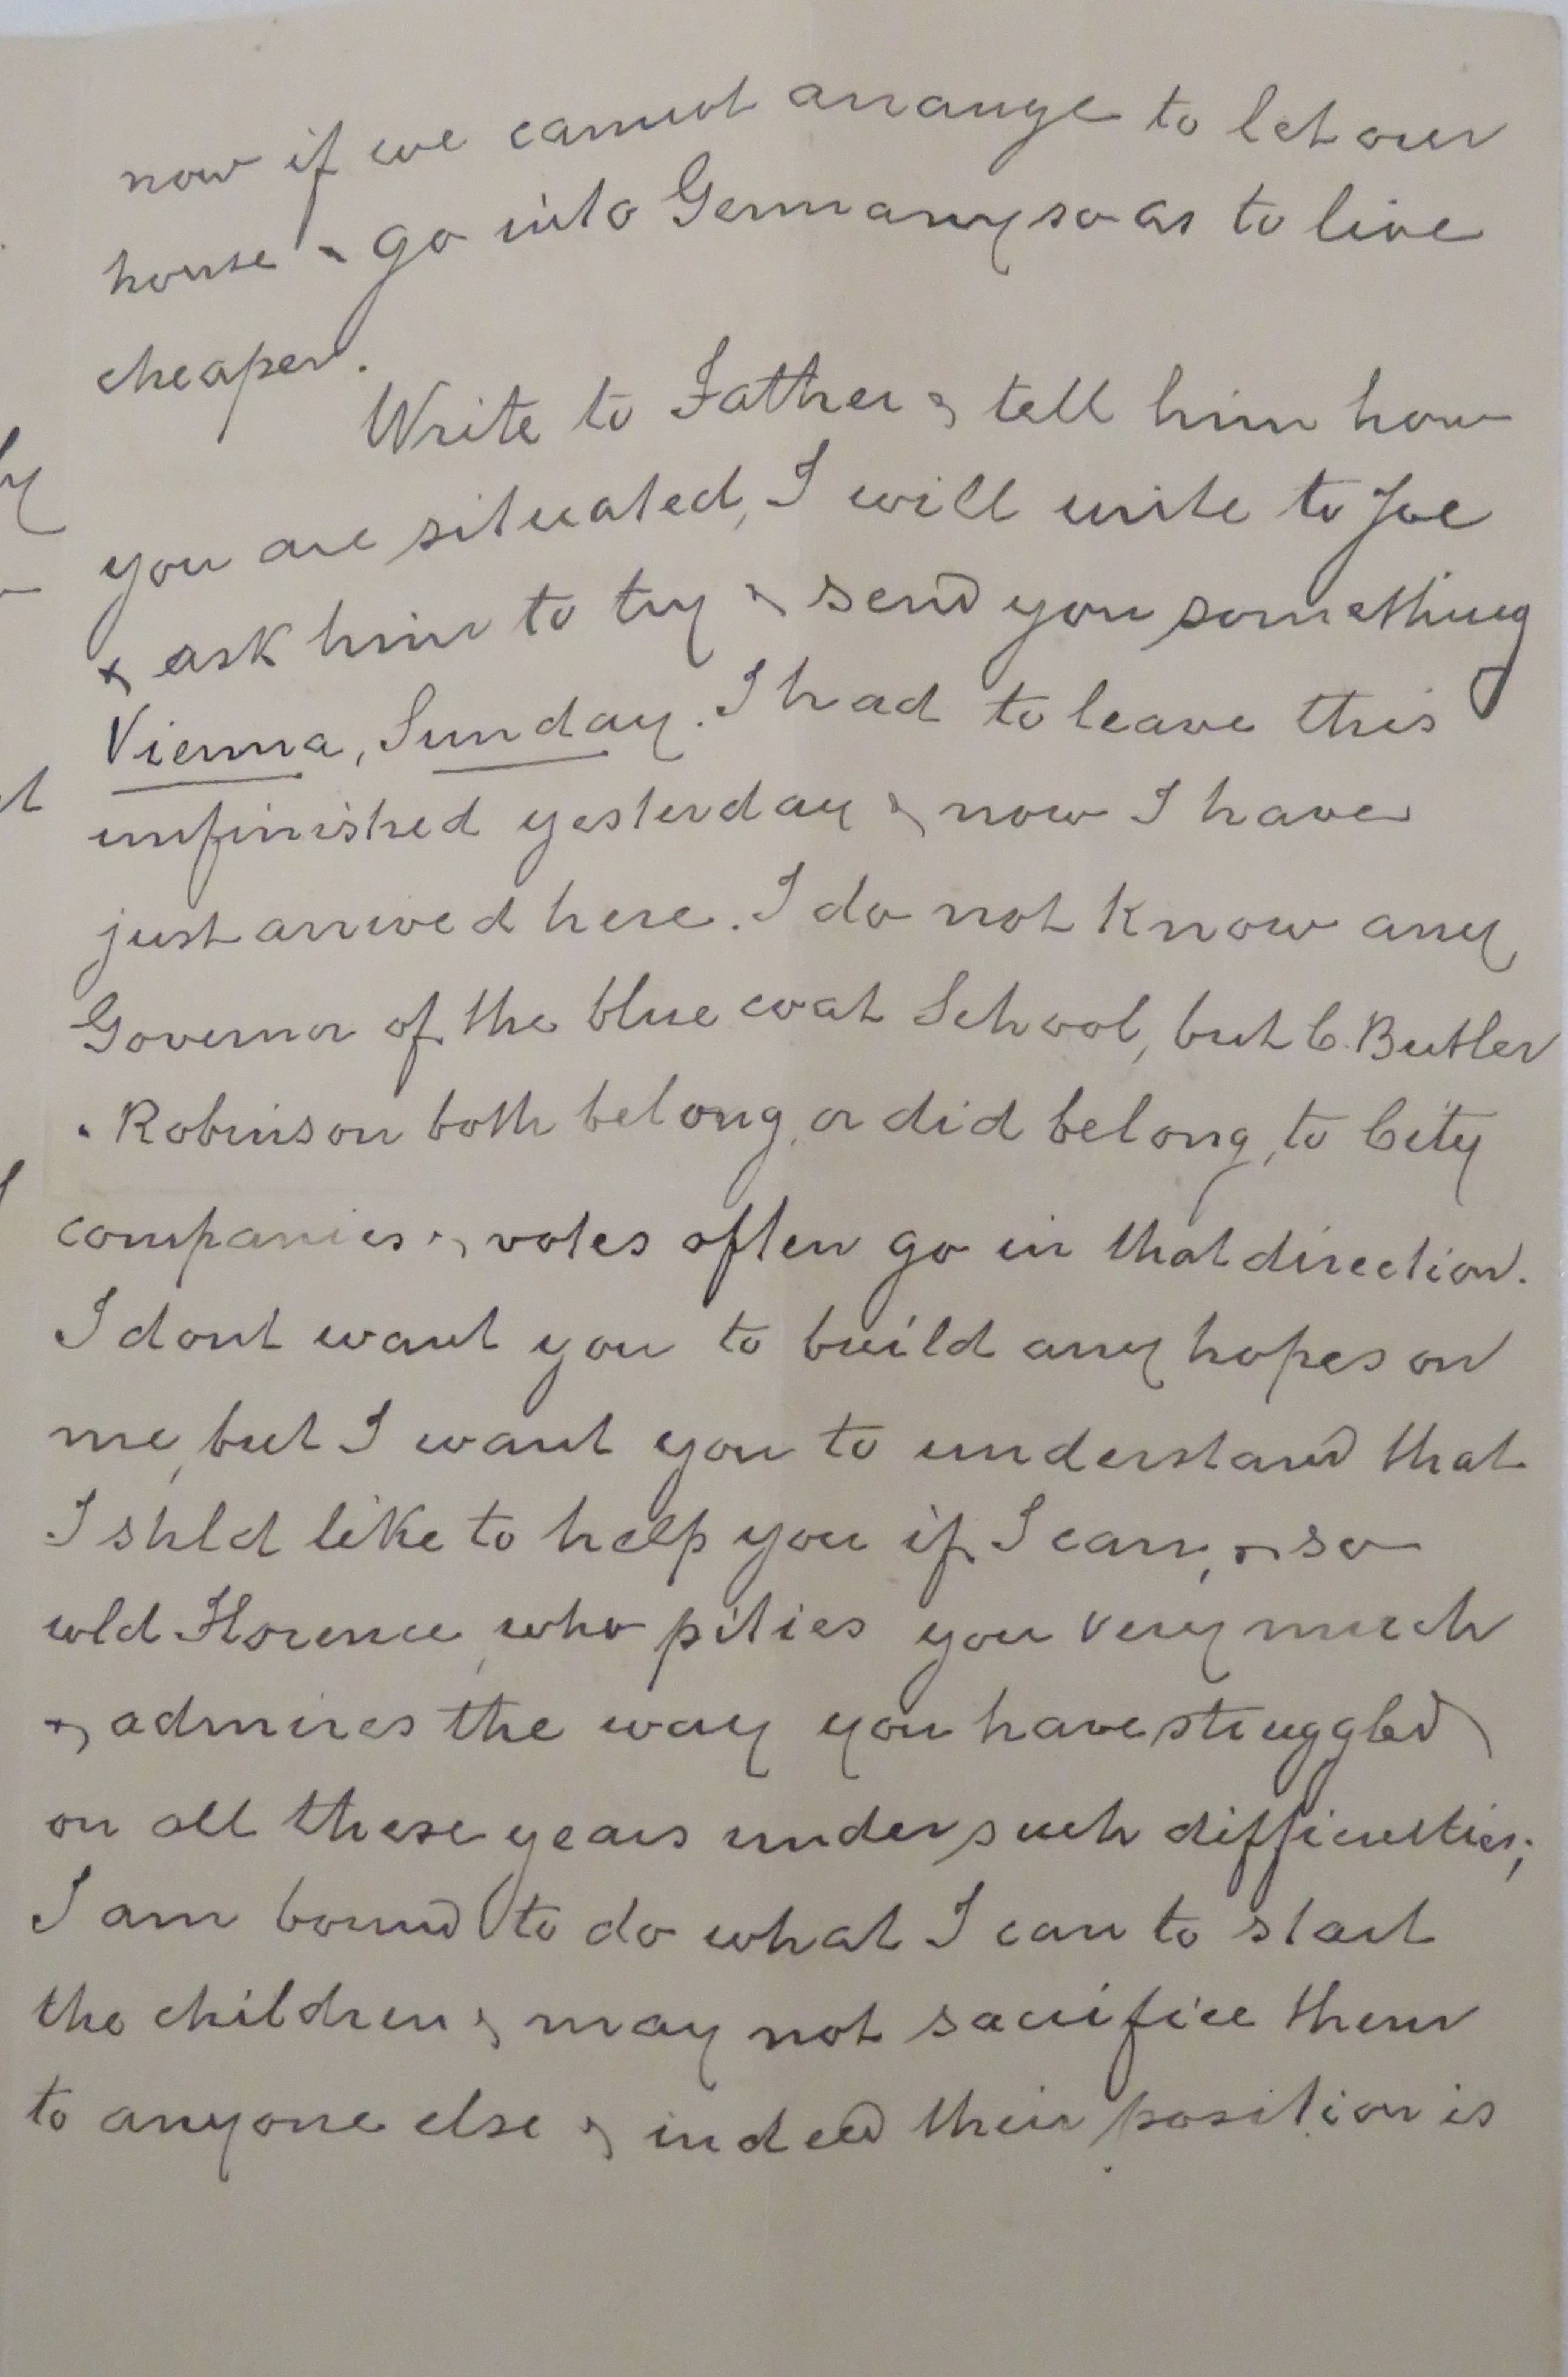 now if we cannot arrange to let our
house & go into Germany so as to live
cheaper.
Write to Father & tell him how
you are situated, I will write to Joe
& ask him to try & send you something
Vienna, Sunday. I had to leave this
unfinished yesterday & now I have
just arrived here. I do not know any
Governor of the blue coat School, but C. Butler
& Robinson both belong, or did belong, to City
companies & votes often go in that direction.
I dont want you to build any hopes on
me, but I want you to understand that
I shld like to help you if I can, & so
wld Florence, who pities you very much
& admires the way you have struggled
on all these years under such difficulties;
I am bound to do what I can to start
the children & may not sacrifice them
to anyone else & indeed their position is